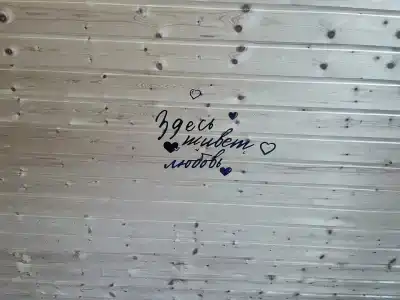 Здесь
живет
любовь